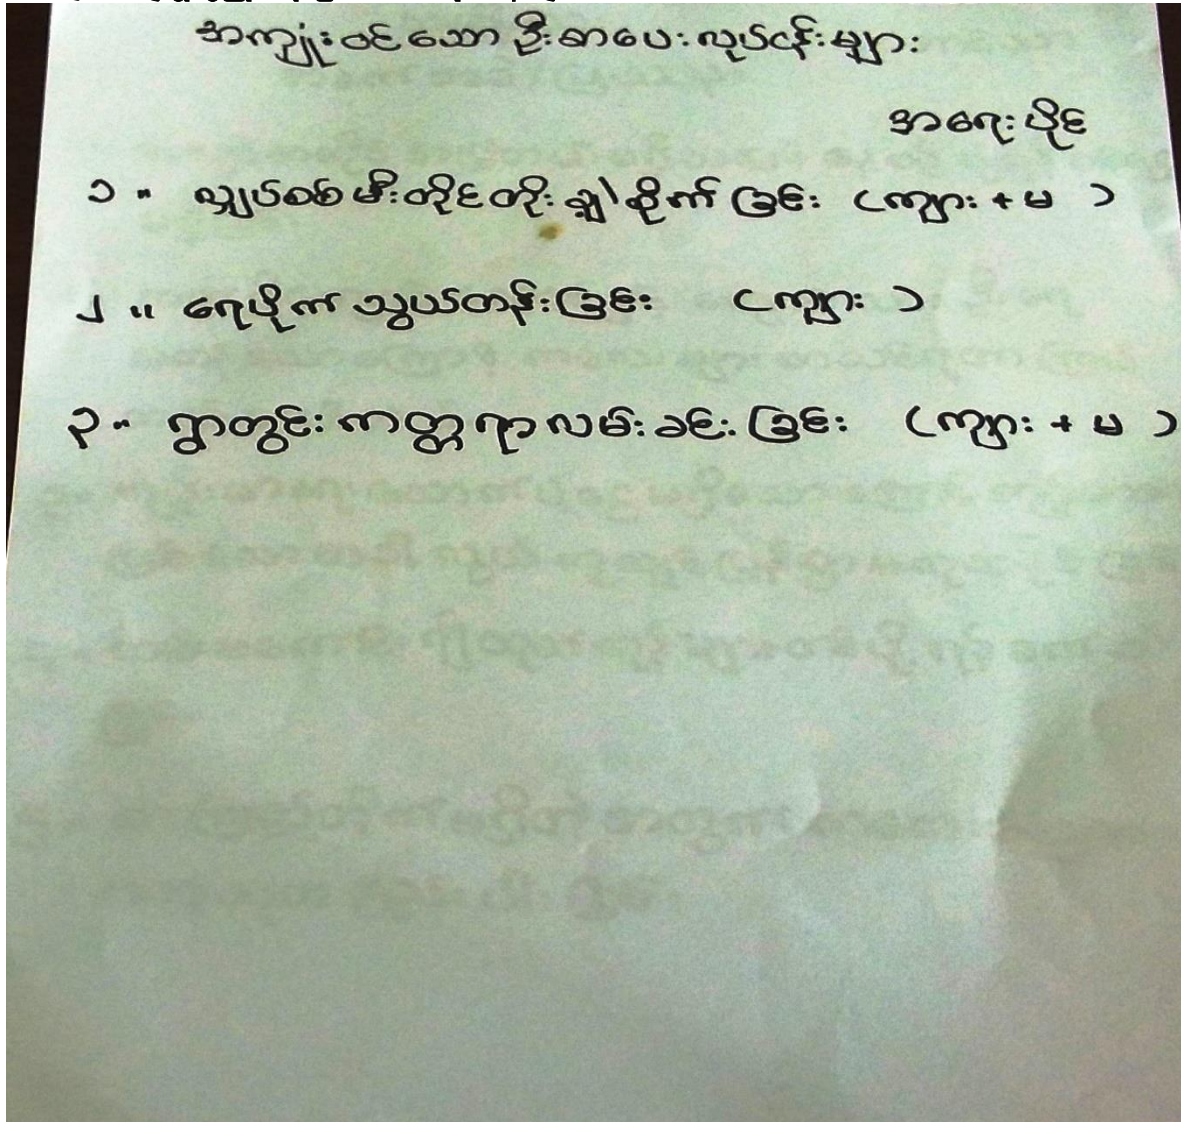 အကျုံးဝင်သော ဦးစားပေးလုပ်ငန်းများ
အရေးပိုင်
၁။ လျှပ်စစ်မီးတိုင်တိုးချဲ့စိုက်ခြင်း (ကျား + မ )
၂။ ရေပိုက်သွယ်တန်းခြင်း (ကျား )
၃။ ရွာတွင်းကတ္တရာလမ်းခင်းခြင်း (ကျား + မ )